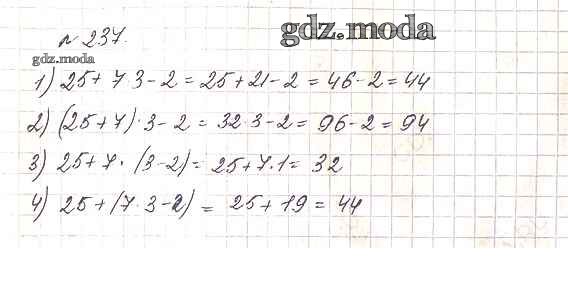 № 237.
gdz.moda
gdz.moda
1) 25 + 7 3 - 2 = 25 + 21 - 2 = 46 - 2 = 44
2) (25 + 7) · 3 - 2 = 32 3 - 2 = 96 - 2 = 94
3) 25 + 7 · (3 - 2) = 25 + 7 · 1 = 32
4) 25 + (7 · 3 - 2) = 25 + 19 = 44